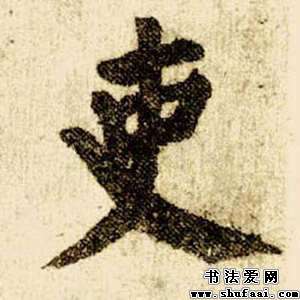 吏
书法爱网
www.shufaai.com